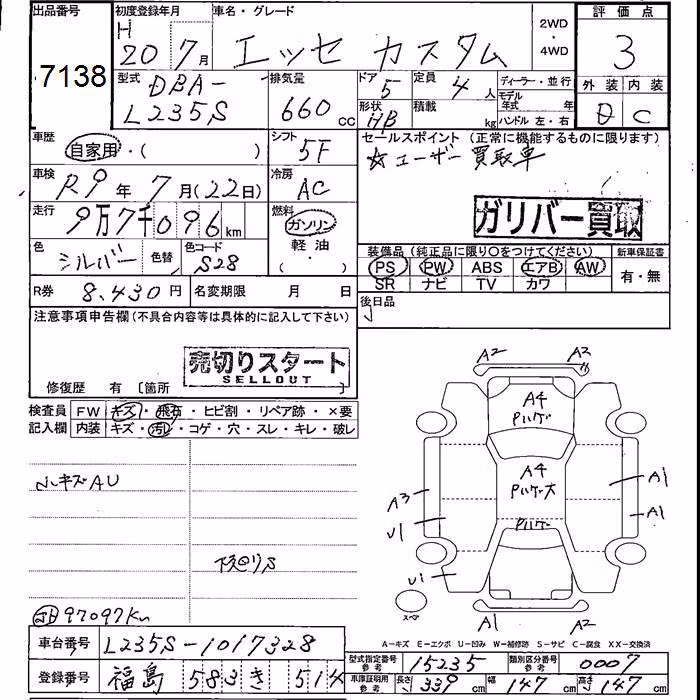 出品番号 初度登録年月 車名・グレード 2WD・4WD 評価点
7138 H20年7月 エッセ カスタム 3
型式 DBA-L235S 排気量 660cc ドア 5 定員 4人 ディーラー・並行
形状 HB 積載 kg モデル年式 年式 ハンドル 左・右
外装 D 内装 C
車歴 自家用・( ) シフト 5F
セールスポイント (正常に機能するものに限ります)
☆ユーザー買取車
車検 R9年7月(22日) 冷房 AC
走行 9万7千096km 燃料 ガソリン 軽油・( )
ガリバー買取
色 シルバー 色替 色コード S28
装備品 (純正品に限り○をつけてください) 新車保証書
PS PW ABS エアB AW 有・無
SR ナビ TV カワ
R券 8,430円 名変期限 月 日
後日品
注意事項申告欄 (不具合内容等は具体的に記入して下さい)
売切りスタート
SELLOUT
修復歴 有 [箇所 ]
検査員記入欄 FW キズ・飛石・ヒビ割・リペア跡・×要
内装 キズ・汚れ・コゲ・穴・スレ・キレ・破レ
小キズAU
下廻りS
97097Km
A2 A2
A4
Pハゲ
A4
Pハゲ大
Pハゲ
A3
U1
U1
A1
A1
A1 A2
スペア
A…キズ E…エクボ U…凹み W…補修跡 S…サビ C…腐食 XX…交換済
車台番号 L235S-1017328
型式指定番号 15235 類別区分番号 0007
登録番号 福島 583 き 514
車庫証明用参考 長さ 339cm 幅 147cm 高さ 147cm